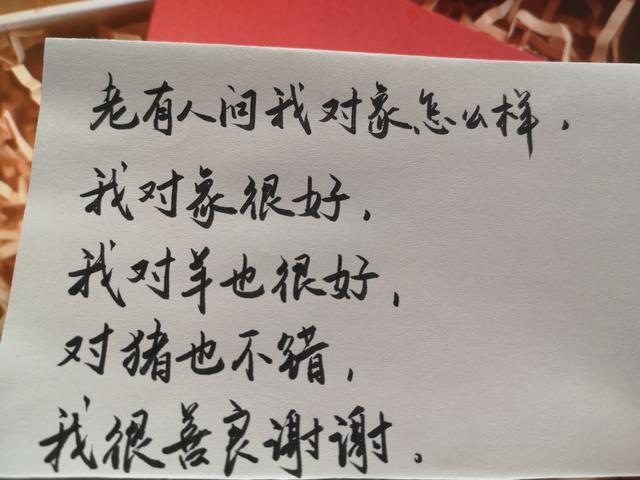 老有人问我对象怎么样，
我对象很好，
我对羊也很好，
对猪也不错，
我很善良谢谢。